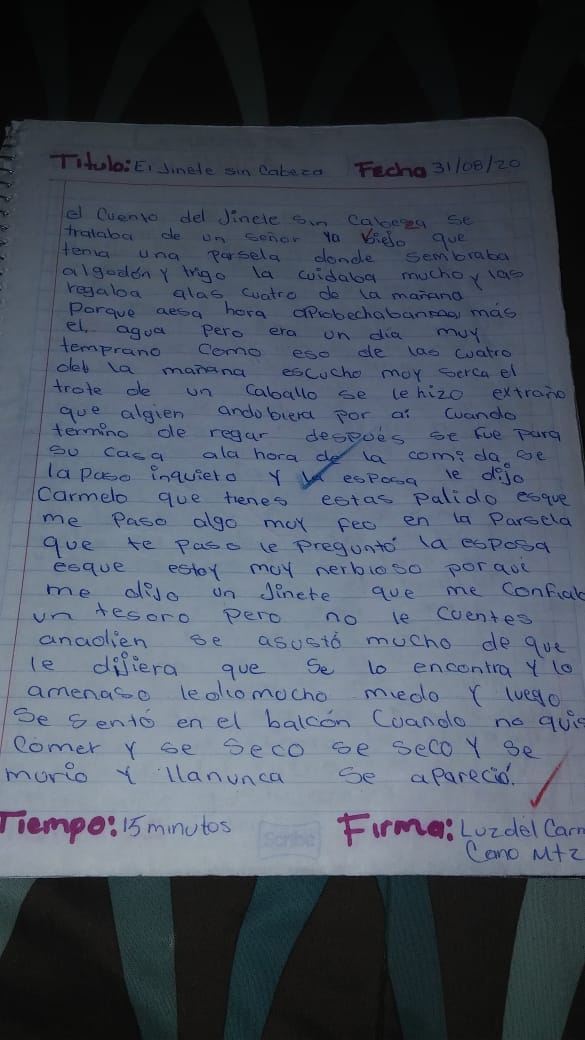 Titulo: El Jinete sin Cabeza Fecha 31/08/20
el Cuento del Jinete sin Cabeza se
trataba de un señor ya biejo que
tenia una parsela donde sembraba
algodón y trigo la cuidaba mucho y las
regaba alas cuatro de la mañana
Porque aesa hora aprobechaban más
el agua pero era un dia muy
temprano como eso de las cuatro
deb la mañana escucho muy serca el
trote de un caballo se le hizo extraño
que algien andubiera por ai cuando
termino de regar después se fue para
su casa ala hora de la comida se
la paso inquieto y la esposa le dijo
Carmelo que tienes estas palido esque
me paso algo muy feo en la Parsela
que te paso le Preguntó la esposa
esque estoy muy nerbioso porqui
me dijo un Jinete que me confiab
un tesoro pero no le cuentes
anadien se asustó mucho de que
le dijiera que se lo encontra y lo
amenaso lediomucho miedo y luego
se sentó en el balcón Cuando no quis
comer y se seco se seco y se
murio y llanunca se apareció.
Tiempo: 15 minutos Firma: Luz del Carm
Scribe Cano Mtz